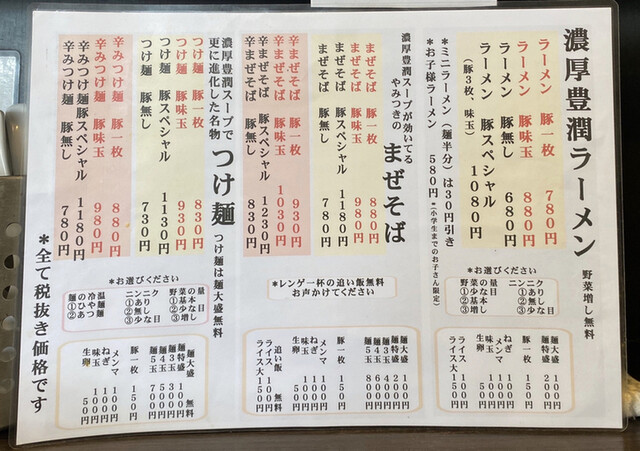 濃厚豊潤ラーメン
野菜増し無料
ラーメン 豚一枚 780円
ラーメン 豚味玉 880円
ラーメン 豚無し 680円
ラーメン 豚スペシャル 1080円
(豚3枚、味玉)
*ミニラーメン(麺半分)は30円引き
*お子様ラーメン 580円*(小学生までのお子さん限定)
濃厚豊潤スープが効いてる
やみつきの まぜそば
まぜそば 豚一枚 880円
まぜそば 豚味玉 980円
まぜそば 豚スペシャル 1180円
まぜそば 豚無し 780円
辛まぜそば 豚一枚 930円
辛まぜそば 豚味玉 1030円
辛まぜそば 豚スペシャル 1230円
辛まぜそば 豚無し 830円
濃厚豊潤スープで
更に進化した名物 つけ麺
つけ麺は麺大盛無料
つけ麺 豚一枚 830円
つけ麺 豚味玉 930円
つけ麺 豚スペシャル 1130円
つけ麺 豚無し 730円
辛みつけ麺 豚一枚 880円
辛みつけ麺 豚味玉 980円
辛みつけ麺豚スペシャル 1180円
辛みつけ麺 豚無し 780円
*お選びください
野菜の量
①基本
②少なめ
③増し
ニンニク
①あり
②無し
③少な目
*レンゲ一杯の追い飯無料
お声かけてください
*お選びください
野菜の量
①基本
②少な目
③増し
ニンニク
①あり
②無し
③少な目
麺の温冷
①ひやつ
②あつ
麺大盛 100円
麺特盛 200円
豚一枚 150円
メンマ 100円
ねぎ 100円
味玉 100円
生卵 50円
ライス 100円
ライス大 150円
麺大盛 100円
麺特盛 200円
麺3玉 400円
麺4玉 600円
麺5玉 800円
豚一枚 150円
メンマ 100円
ねぎ 100円
味玉 100円
生卵 50円
追い飯 無料
ライス 100円
ライス大 150円
麺大盛 無料
麺特盛 100円
麺3玉 300円
麺4玉 500円
麺5玉 700円
豚一枚 150円
メンマ 100円
ねぎ 100円
味玉 100円
生卵 50円
*全て税抜き価格です